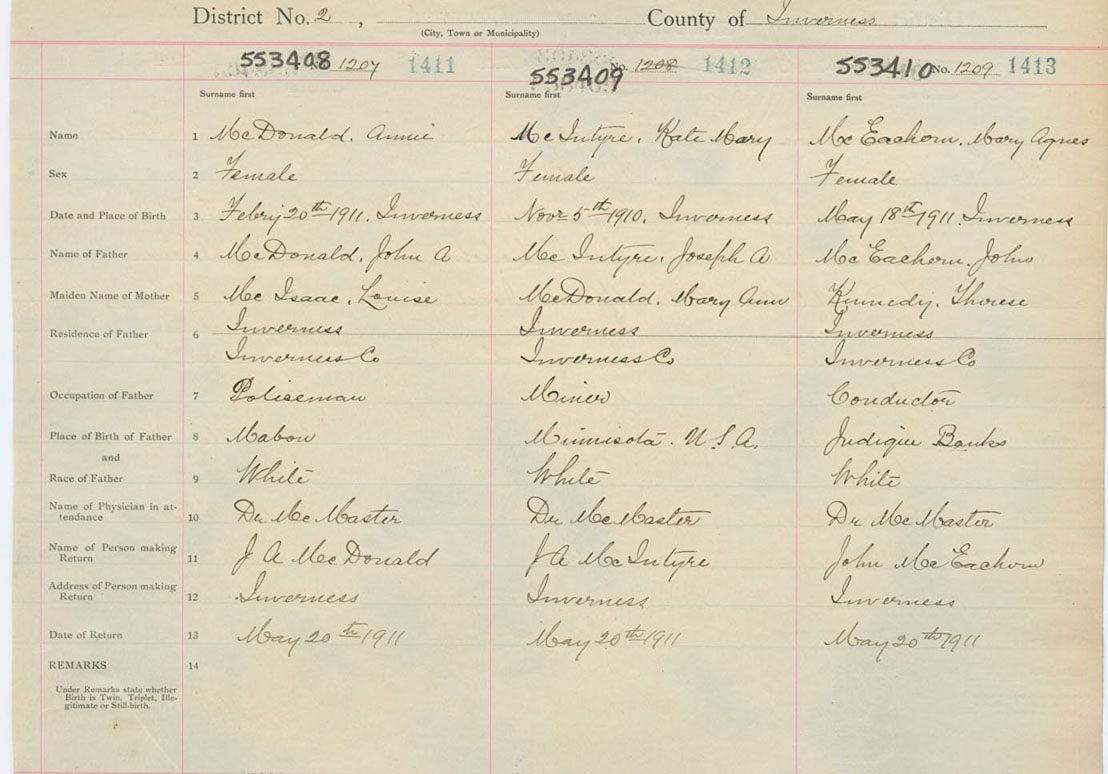 District No. 2 , County of Inverness
(City, Town or Municipality)
553408 No. 1207 1411 553409 No. 1208 1412 553410 No. 1209 1413
Surname first Surname first Surname first
Name 1 McDonald, Annie McIntyre, Kate Mary McEachern, Mary Agnes
Sex 2 Female Female Female
Date and Place of Birth 3 Febry 20th 1911, Inverness Novr 5th 1910, Inverness May 18th 1911 Inverness
Name of Father 4 McDonald, John A McIntyre, Joseph A McEachern, John
Maiden Name of Mother 5 McIsaac, Louise McDonald, Mary Ann Kennedy, Therese
Residence of Father 6 Inverness Inverness Inverness
Inverness Co Inverness Co Inverness Co
Occupation of Father 7 Policeman Miner Conductor
Place of Birth of Father 8 Mabou Minnisota. U.S.A. Judique Banks
and
Race of Father 9 White White White
Name of Physician in at-
tendance 10 Dr McMaster Dr McMaster Dr McMaster
Name of Person making
Return 11 J A McDonald J A McIntyre John McEachern
Address of Person making
Return 12 Inverness Inverness Inverness
Date of Return 13 May 20th 1911 May 20th 1911 May 20th 1911
REMARKS 14
Under Remarks state whether
Birth is Twin, Triplet, Ille-
gitimate or Still-birth.